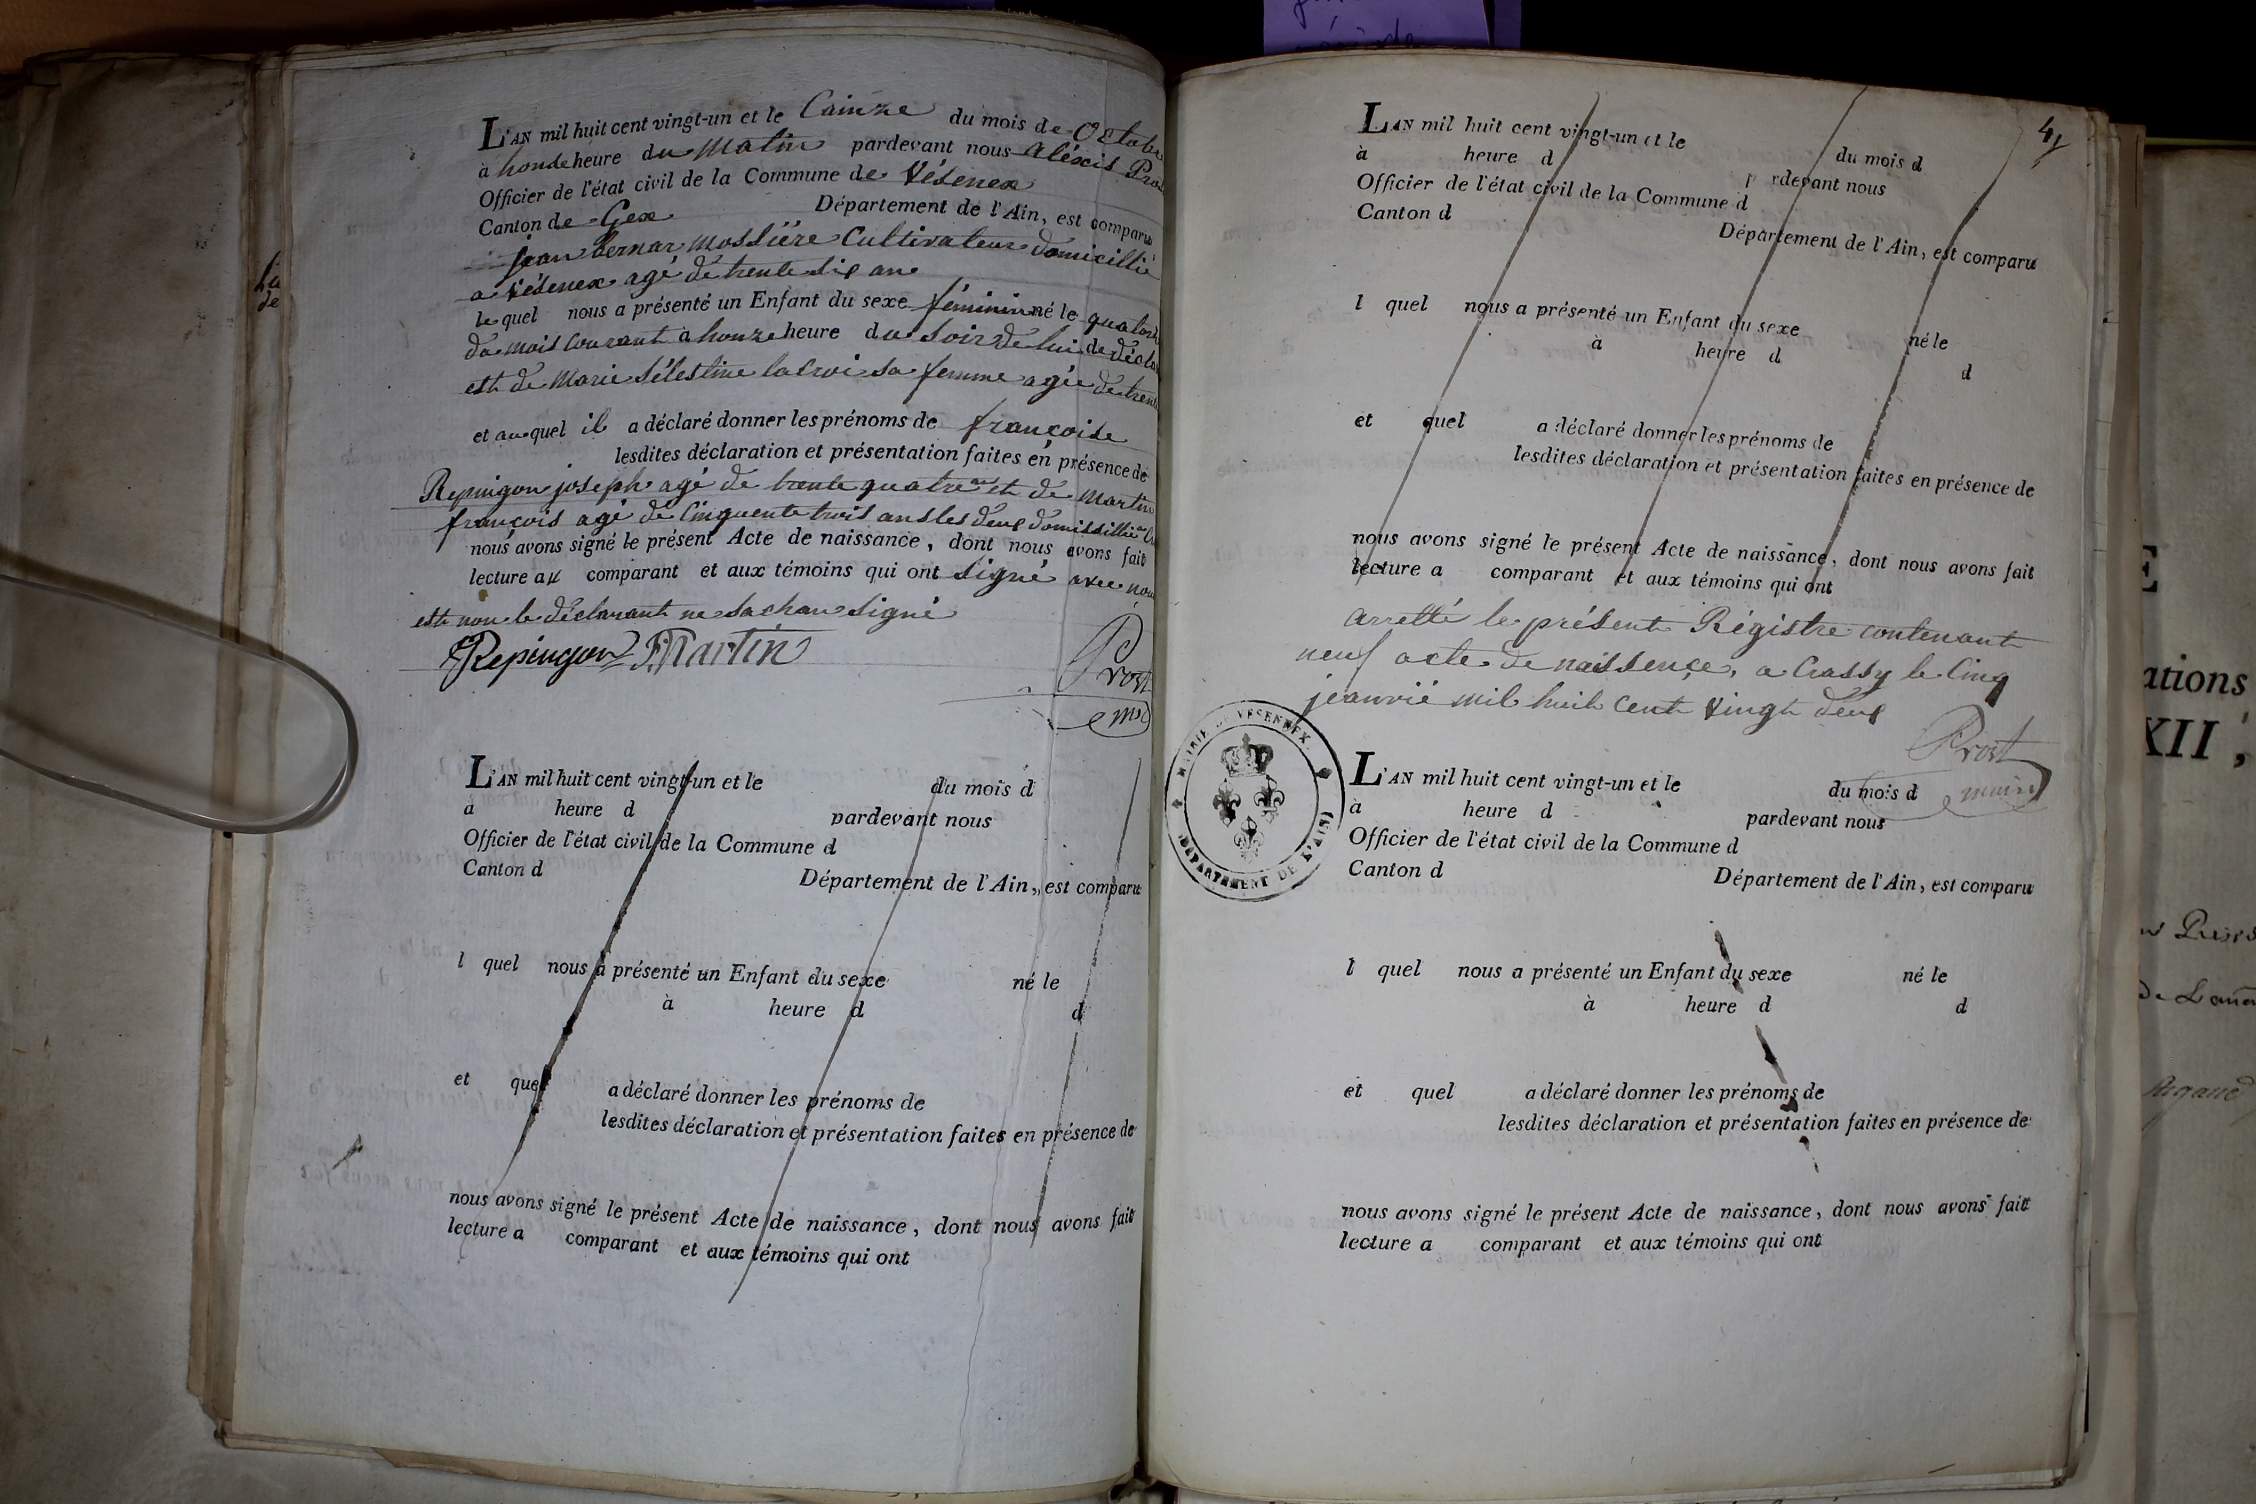 L'AN mil huit cent vingt-un et le Cainze du mois de Octobre
à honde heure du Matin pardevant nous Aléxis Prost
Officier de l'état civil de la Commune de Vésenex
Canton de Gex Département de l'Ain, est comparu
jean bernar mossiére Cultivateur domicillié
a Vésenex agé de trente six ans
le quel nous a présenté un Enfant du sexe féminin né le quatorze
du mois Courant à honze heure du Soir de lui de déclar
eth de Marie Sélestine lacroi sa femme agée de trente
et au quel il a déclaré donner les prénoms de françoise
lesdites déclaration et présentation faites en présence de
Repingon joseph agé de trente quatre ans eth de Martin
françois agé de Cinquente trois ans les deux domissillié
nous avons signé le présent Acte de naissance, dont nous avons fait
lecture au comparant et aux témoins qui ont Signé avec nous
eth non le déclarant ne sachan signé
Repingon F. Martin
Prost
L'AN mil huit cent vingt-un et le du mois d
a heure d pardevant nous
Officier de l'état civil de la Commune d
Canton d Département de l'Ain, est comparu
l quel nous a présenté un Enfant du sexe né le
à heure d d
et quel a déclaré donner les prénoms de
lesdites déclaration et présentation faites en présence de
nous avons signé le présent Acte de naissance, dont nous avons fait
lecture a comparant et aux témoins qui ont
4
L'AN mil huit cent vingt-un et le du mois d
à heure d pardevant nous
Officier de l'état civil de la Commune d
Canton d Département de l'Ain, est comparu
l quel nous a présenté un Enfant du sexe né le
à heure d d
et quel a déclaré donner les prénoms de
lesdites déclaration et présentation faites en présence de
nous avons signé le présent Acte de naissance, dont nous avons fait
lecture a comparant et aux témoins qui ont
arretté le présent Régistre contenant
neuf acte de naissençe, a Crassy le Cinq
jeanvié mil huit cent vingt deux
Prost
maire
MAIRIE DE VESENNEX
DEPARTEMENT DE L'AIN
L'AN mil huit cent vingt-un et le du mois d
à heure d pardevant nous
Officier de l'état civil de la Commune d
Canton d Département de l'Ain, est comparu
l quel nous a présenté un Enfant du sexe né le
à heure d d
et quel a déclaré donner les prénoms de
lesdites déclaration et présentation faites en présence de
nous avons signé le présent Acte de naissance, dont nous avons fait
lecture a comparant et aux témoins qui ont
E
ations
XII,